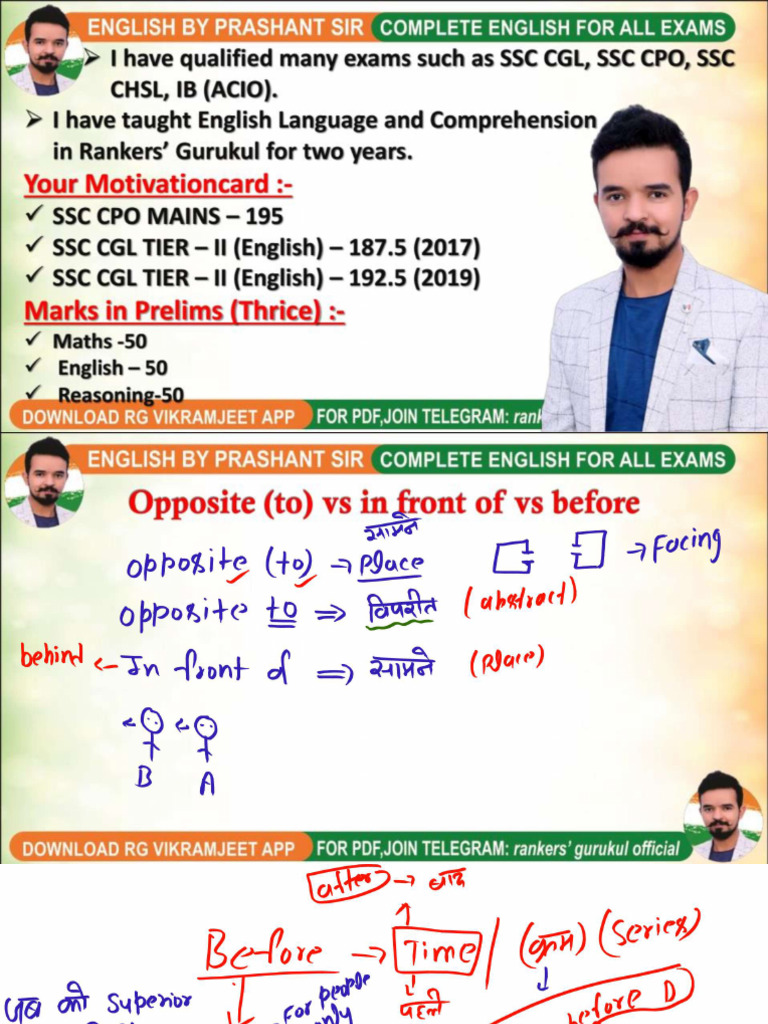 ENGLISH BY PRASHANT SIR COMPLETE ENGLISH FOR ALL EXAMS
➢ I have qualified many exams such as SSC CGL, SSC CPO, SSC
CHSL, IB (ACIO).
➢ I have taught English Language and Comprehension
in Rankers' Gurukul for two years.
Your Motivationcard :-
✓ SSC CPO MAINS – 195
✓ SSC CGL TIER – II (English) – 187.5 (2017)
✓ SSC CGL TIER – II (English) – 192.5 (2019)
Marks in Prelims (Thrice) :-
✓ Maths -50
✓ English – 50
✓ Reasoning-50
DOWNLOAD RG VIKRAMJEET APP FOR PDF,JOIN TELEGRAM: rank
ENGLISH BY PRASHANT SIR COMPLETE ENGLISH FOR ALL EXAMS
Opposite (to) vs in front of vs before
सामने
opposite (to) → Place → Facing
opposite to ⇒ विपरीत (abstract)
behind ← In front of ⇒ सामने (Place)
B A
DOWNLOAD RG VIKRAMJEET APP FOR PDF,JOIN TELEGRAM: rankers' gurukul official
after → बाद
Before → Time / (क्रम) (Series)
जब को Superior For people पहले before D
only